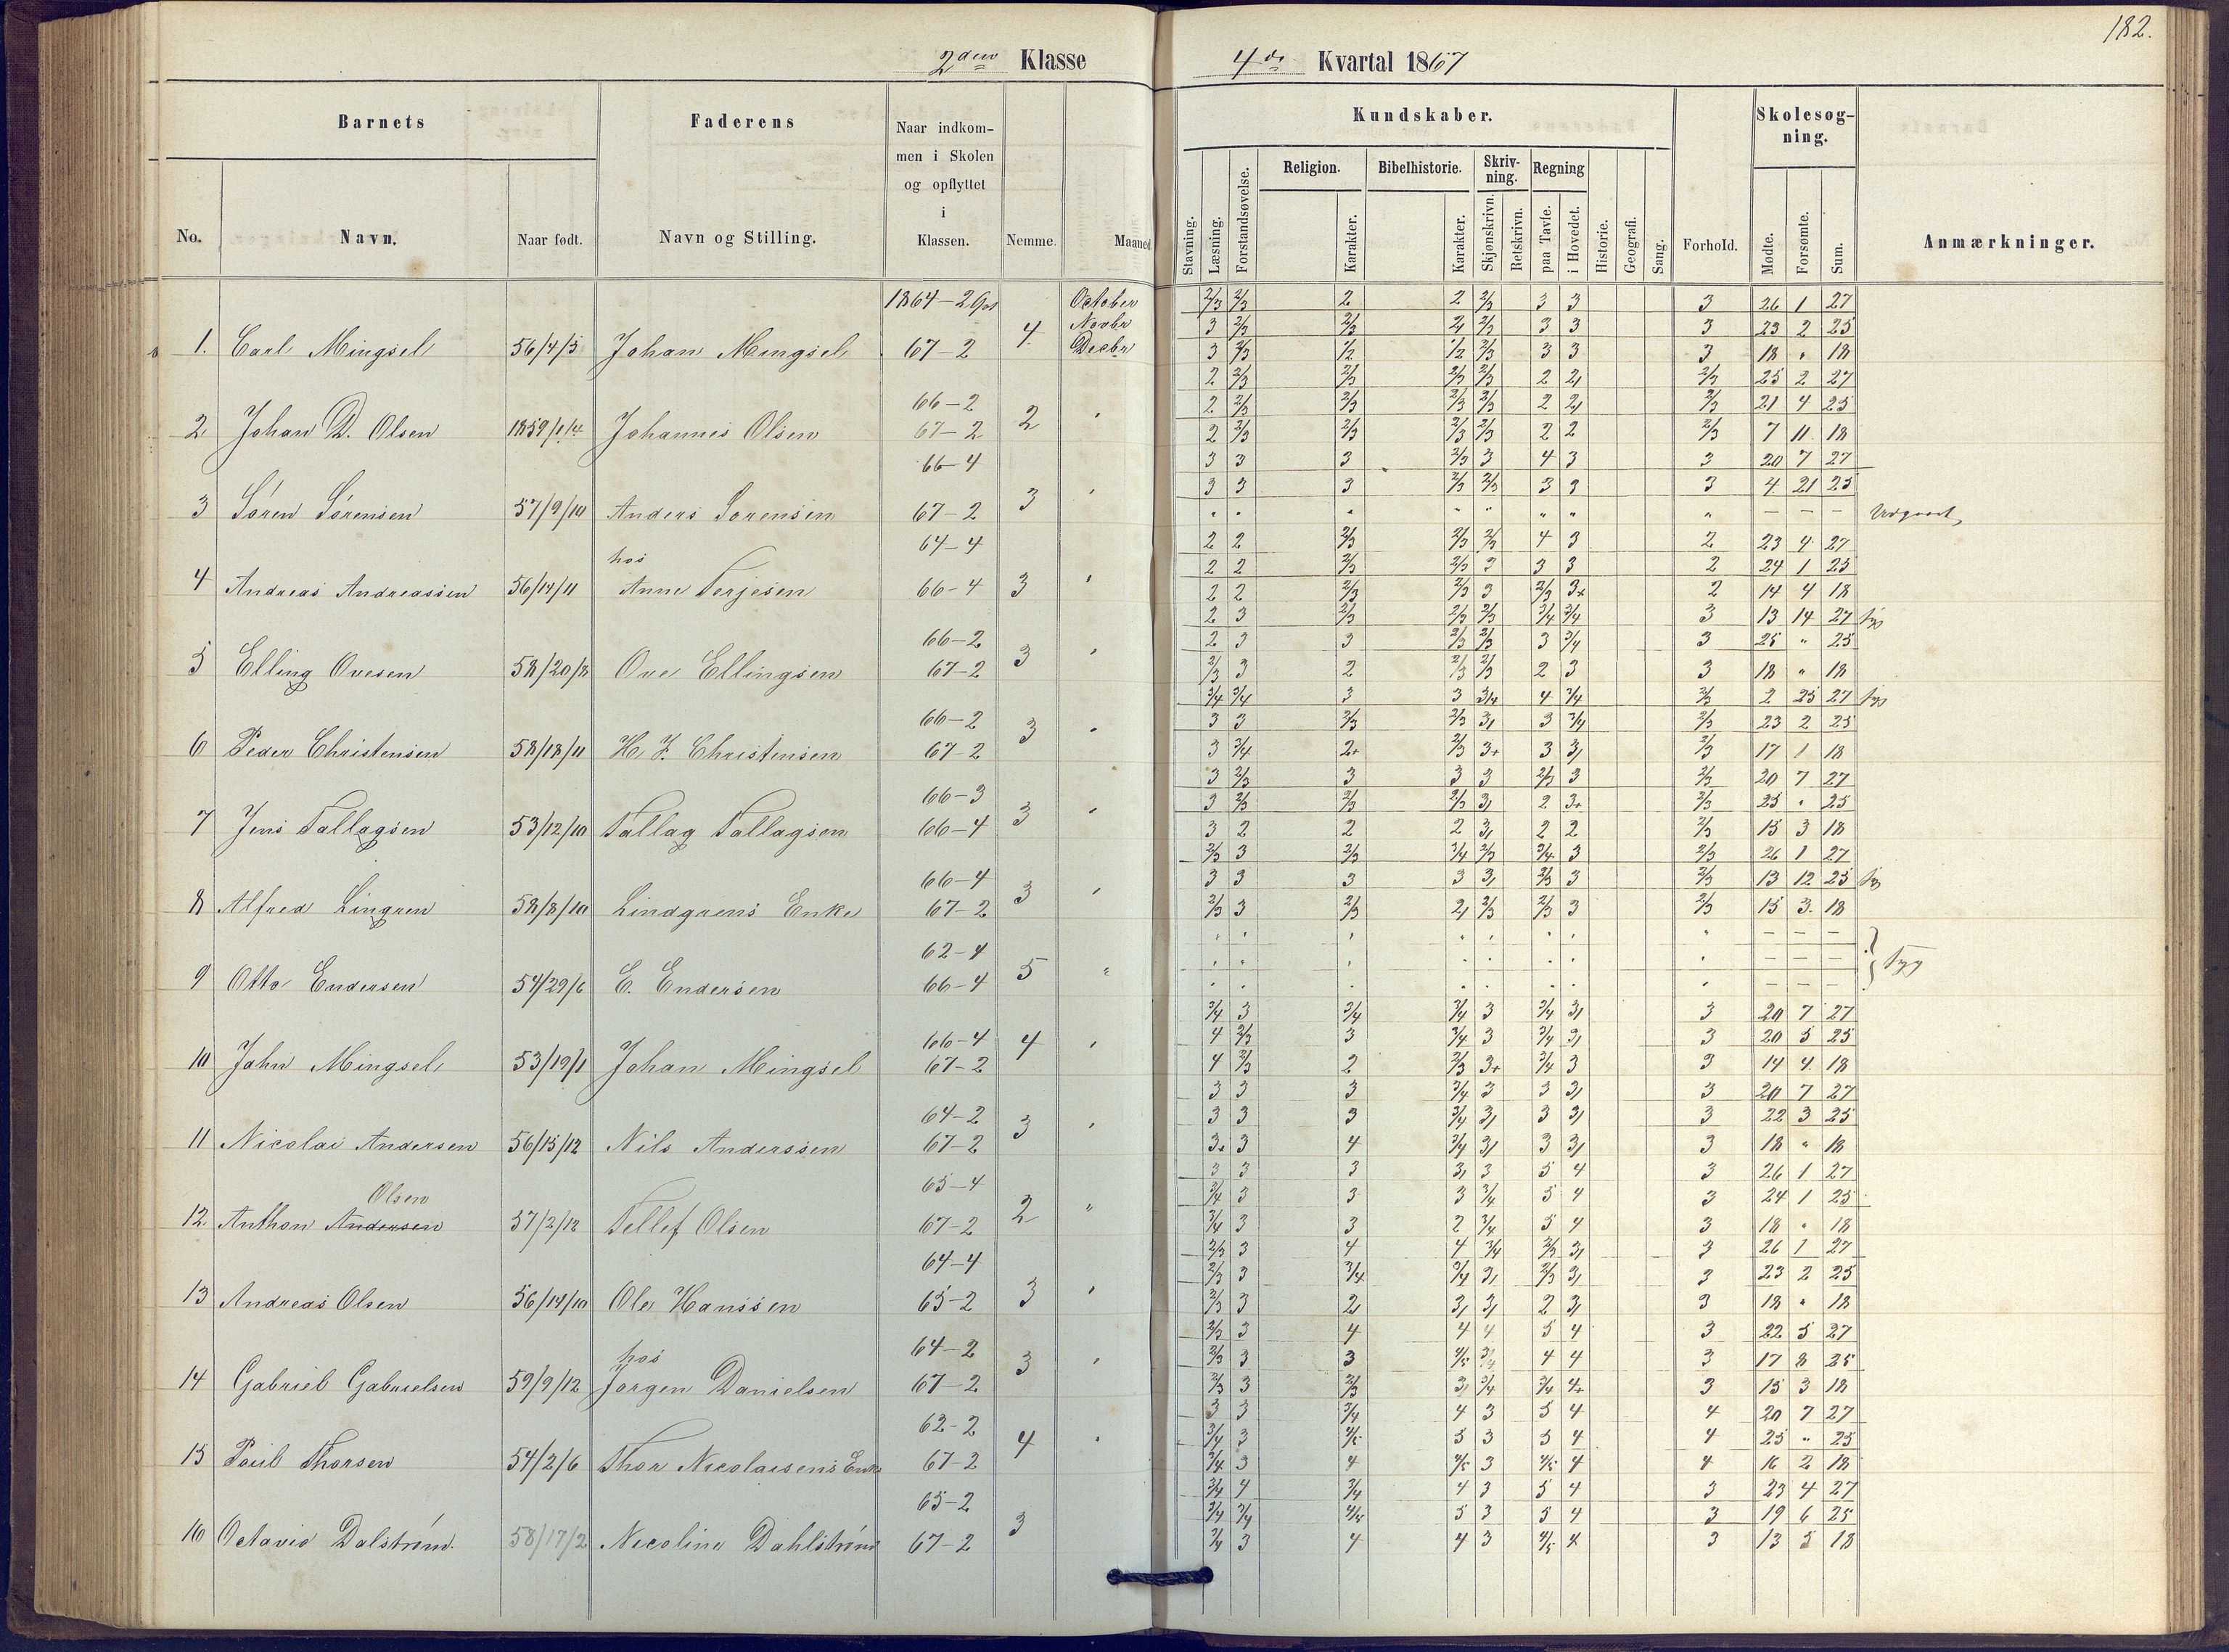 182.
2den Klasse
4de Kvartal 1867
Barnets
Faderens
Naar indkommen i Skolen og opflyttet i Klassen.
Nemme.
Maaned
No.
Navn.
Naar født.
Navn og Stilling.
Kundskaber.
Stavning.
Læsning.
Forstandsøvelse.
Religion.
Karakter.
Bibelhistorie.
Karakter.
Skrivning.
Skjønskrivn.
Retskrivn.
Regning
paa Tavle.
i Hovedet.
Historie.
Geografi.
Sang.
Forhold.
Skolesøgning.
Mødte.
Forsømte.
Sum.
Anmærkninger.
1864-2 October 2/3 2/3 2 2 2/3 3 3 3 26 1 27
Novbr 3 2/3 2/3 2/3 3 3 3 23 2 25
1. Carl Mingsel 56/4/5 Johan Mingsel 67-2 4 Decbr 3 2/3 1/2 1/2 2/3 3 3 3 18 " 18
2 2/3 2/3 2/3 2/3 2 2/3 25 2 27
66-2 2 2/3 2/3 2/3 2/3 2 2/3 21 4 25
2 Johan D. Olsen 1859/1/4 Johannes Olsen 67-2 2 2 2/3 2/3 2/3 2/3 2 2 2/3 7 11 18
66-4 3 3 3 2/3 3 4 3 3 20 7 27
3 3 3 2/3 2/3 3 3 3 4 21 25
3 Søren Sørensen 57/9/10 Anders Sorensen 67-2 3 " " " " " " " " — — —
64-4 2 2 2/3 2/3 2/3 4 3 2 23 4 27
hos 2 2 2/3 2/3 3 3 3 2 24 1 25
4 Andreas Andreassen 56/14/11 Anne Terjesen 66-4 3 2 2 2/3 2/3 3 2/3 3+ 2 14 4 18
2 3 2/3 2/3 2/3 3/4 3/4 3 13 14 27 syg
66-2 2 3 3 2/3 2/3 3 3/4 3 25 " 25
5 Elling Ovesen 58/20/8 Ove Ellingsen 67-2 3 2/3 3 2 2/3 2/3 2 3 3 18 " 18
3/4 3/4 3 3 3/4 4 3/4 2/3 2 25 27 syg
66-2 3 3 2/3 2/3 3 3 3/4 2/3 23 2 25
6 Peder Christensen 58/18/11 H. J. Christensen 67-2 3 3 3/4 2+ 2/3 3+ 3 3 2/3 17 1 18
3 2/3 3 3 3 2/3 3 2/3 20 7 27
66-3 3 2/3 2/3 2/3 3 2 3+ 2/3 25 " 25
7 Jens Tallagsen 53/12/10 Tallag Tallagsen 66-4 3 3 2 2 2 3 2 2 2/3 15 3 18
2/3 3 2/3 3/4 2/3 3/4 3 2/3 26 1 27
66-4 3 3 3 3 3 2/3 3 2/3 13 12 25 syg
8 Alfred Lingren 58/8/10 Lindgrens Enke 67-2 3 2/3 3 2/3 2 2/3 2/3 3 2/3 15 3 18
" " " " " " " " — — —
62-4 " " " " " " " " — — — } Syg
9 Otto Endersen 54/29/6 E. Endersen 66-4 5 " " " " " " " " " — — —
3/4 3 3/4 3/4 3 3/4 3 3 20 7 27
66-4 4 2/3 3 3/4 3 3/4 3 3 20 5 25
10 John Mingsel 53/19/1 Johan Mingsel 67-2 4 4 2/3 2 2/3 3+ 3/4 3 3 14 4 18
3 3 3 3/4 3 3 3 3 20 7 27
64-2 3 3 3 3/4 3 3 3 3 22 3 25
11 Nicolai Andersen 56/15/12 Nils Anderssen 67-2 3 3+ 3 4 3/4 3 3 3 3 18 " 18
3 3 3 3 3 5 4 3 26 1 27
Olsen 65-4 3/4 3 3 3 3/4 5 4 3 24 1 25
12. Anthon Andersen 57/2/12 Tellef Olsen 67-2 2 " 3/4 3 3 2 3/4 5 4 3 18 " 18
2/3 3 4 4 3/4 2/3 3 3 26 1 27
64-4 2/3 3 3/4 3/4 3 2/3 3 3 23 2 25
13 Andreas Olsen 56/14/10 Ole Hanssen 65-2 3 2/3 3 2 3 3 2 3 3 18 " 18
2/3 3 4 4 4 5 4 3 22 5 27
hos 64-2 2/3 3 3 4/5 3/4 4 4 3 17 8 25
14 Gabriel Gabrielsen 59/9/12 Jørgen Danielsen 67-2 3 2/3 3 2/3 3 3/4 3/4 4+ 3 15 3 18
3 3 3/4 4 3 5 4 4 20 7 27
62-2 3/4 3 4/5 5 3 5 4 4 25 " 25
15 Poul Thorsen 54/2/6 Thor Nicolaisens Enke 67-2 4 3/4 3 4 4/5 3 4/5 4 4 16 2 18
3/4 4 3/4 4 3 5 4 3 23 4 27
65-2 3/4 3/4 4/5 5 3 5 4 3 19 6 25
16 Octavio Dalstrøm. 58/17/2 Nicoline Dahlstrøm 67-2 3 3/4 3 4 4 3 4/5 4 3 13 5 18